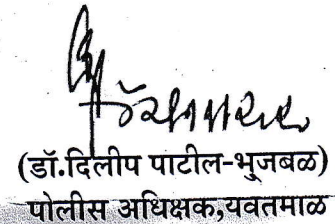 (डॉ.दिलीप पाटील-भुजबळ)
पोलीस अधिक्षक,यवतमाळ